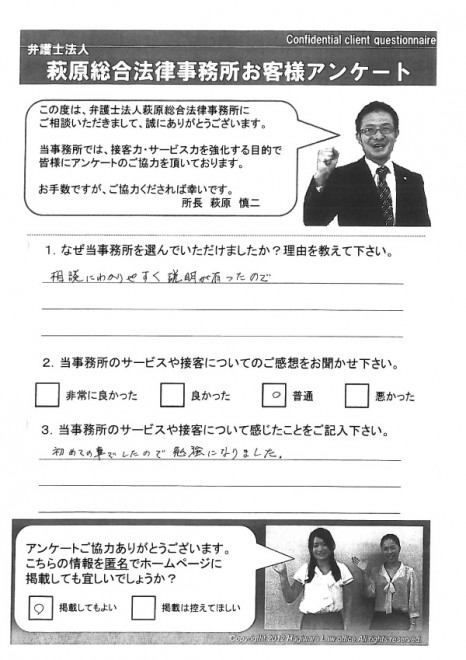 Confidential client questionnaire
弁護士法人
萩原総合法律事務所お客様アンケート
この度は、弁護士法人萩原総合法律事務所に
ご相談いただきまして、誠にありがとうございます。
当事務所では、接客力・サービス力を強化する目的で
皆様にアンケートのご協力を頂いております。
お手数ですが、ご協力くだされば幸いです。
所長 萩原 慎二
1. なぜ当事務所を選んでいただけましたか？理由を教えて下さい。
相談にわかりやすく説明が有ったので
2. 当事務所のサービスや接客についてのご感想をお聞かせ下さい。
非常に良かった 良かった ○ 普通 悪かった
3. 当事務所のサービスや接客について感じたことをご記入下さい。
初めての事でしたので勉強になりました。
アンケートご協力ありがとうございます。
こちらの情報を匿名でホームページに
掲載しても宜しいでしょうか？
○ 掲載してもよい 掲載は控えてほしい
Copyright 2012 Hagiwara Law office All rights reserved.